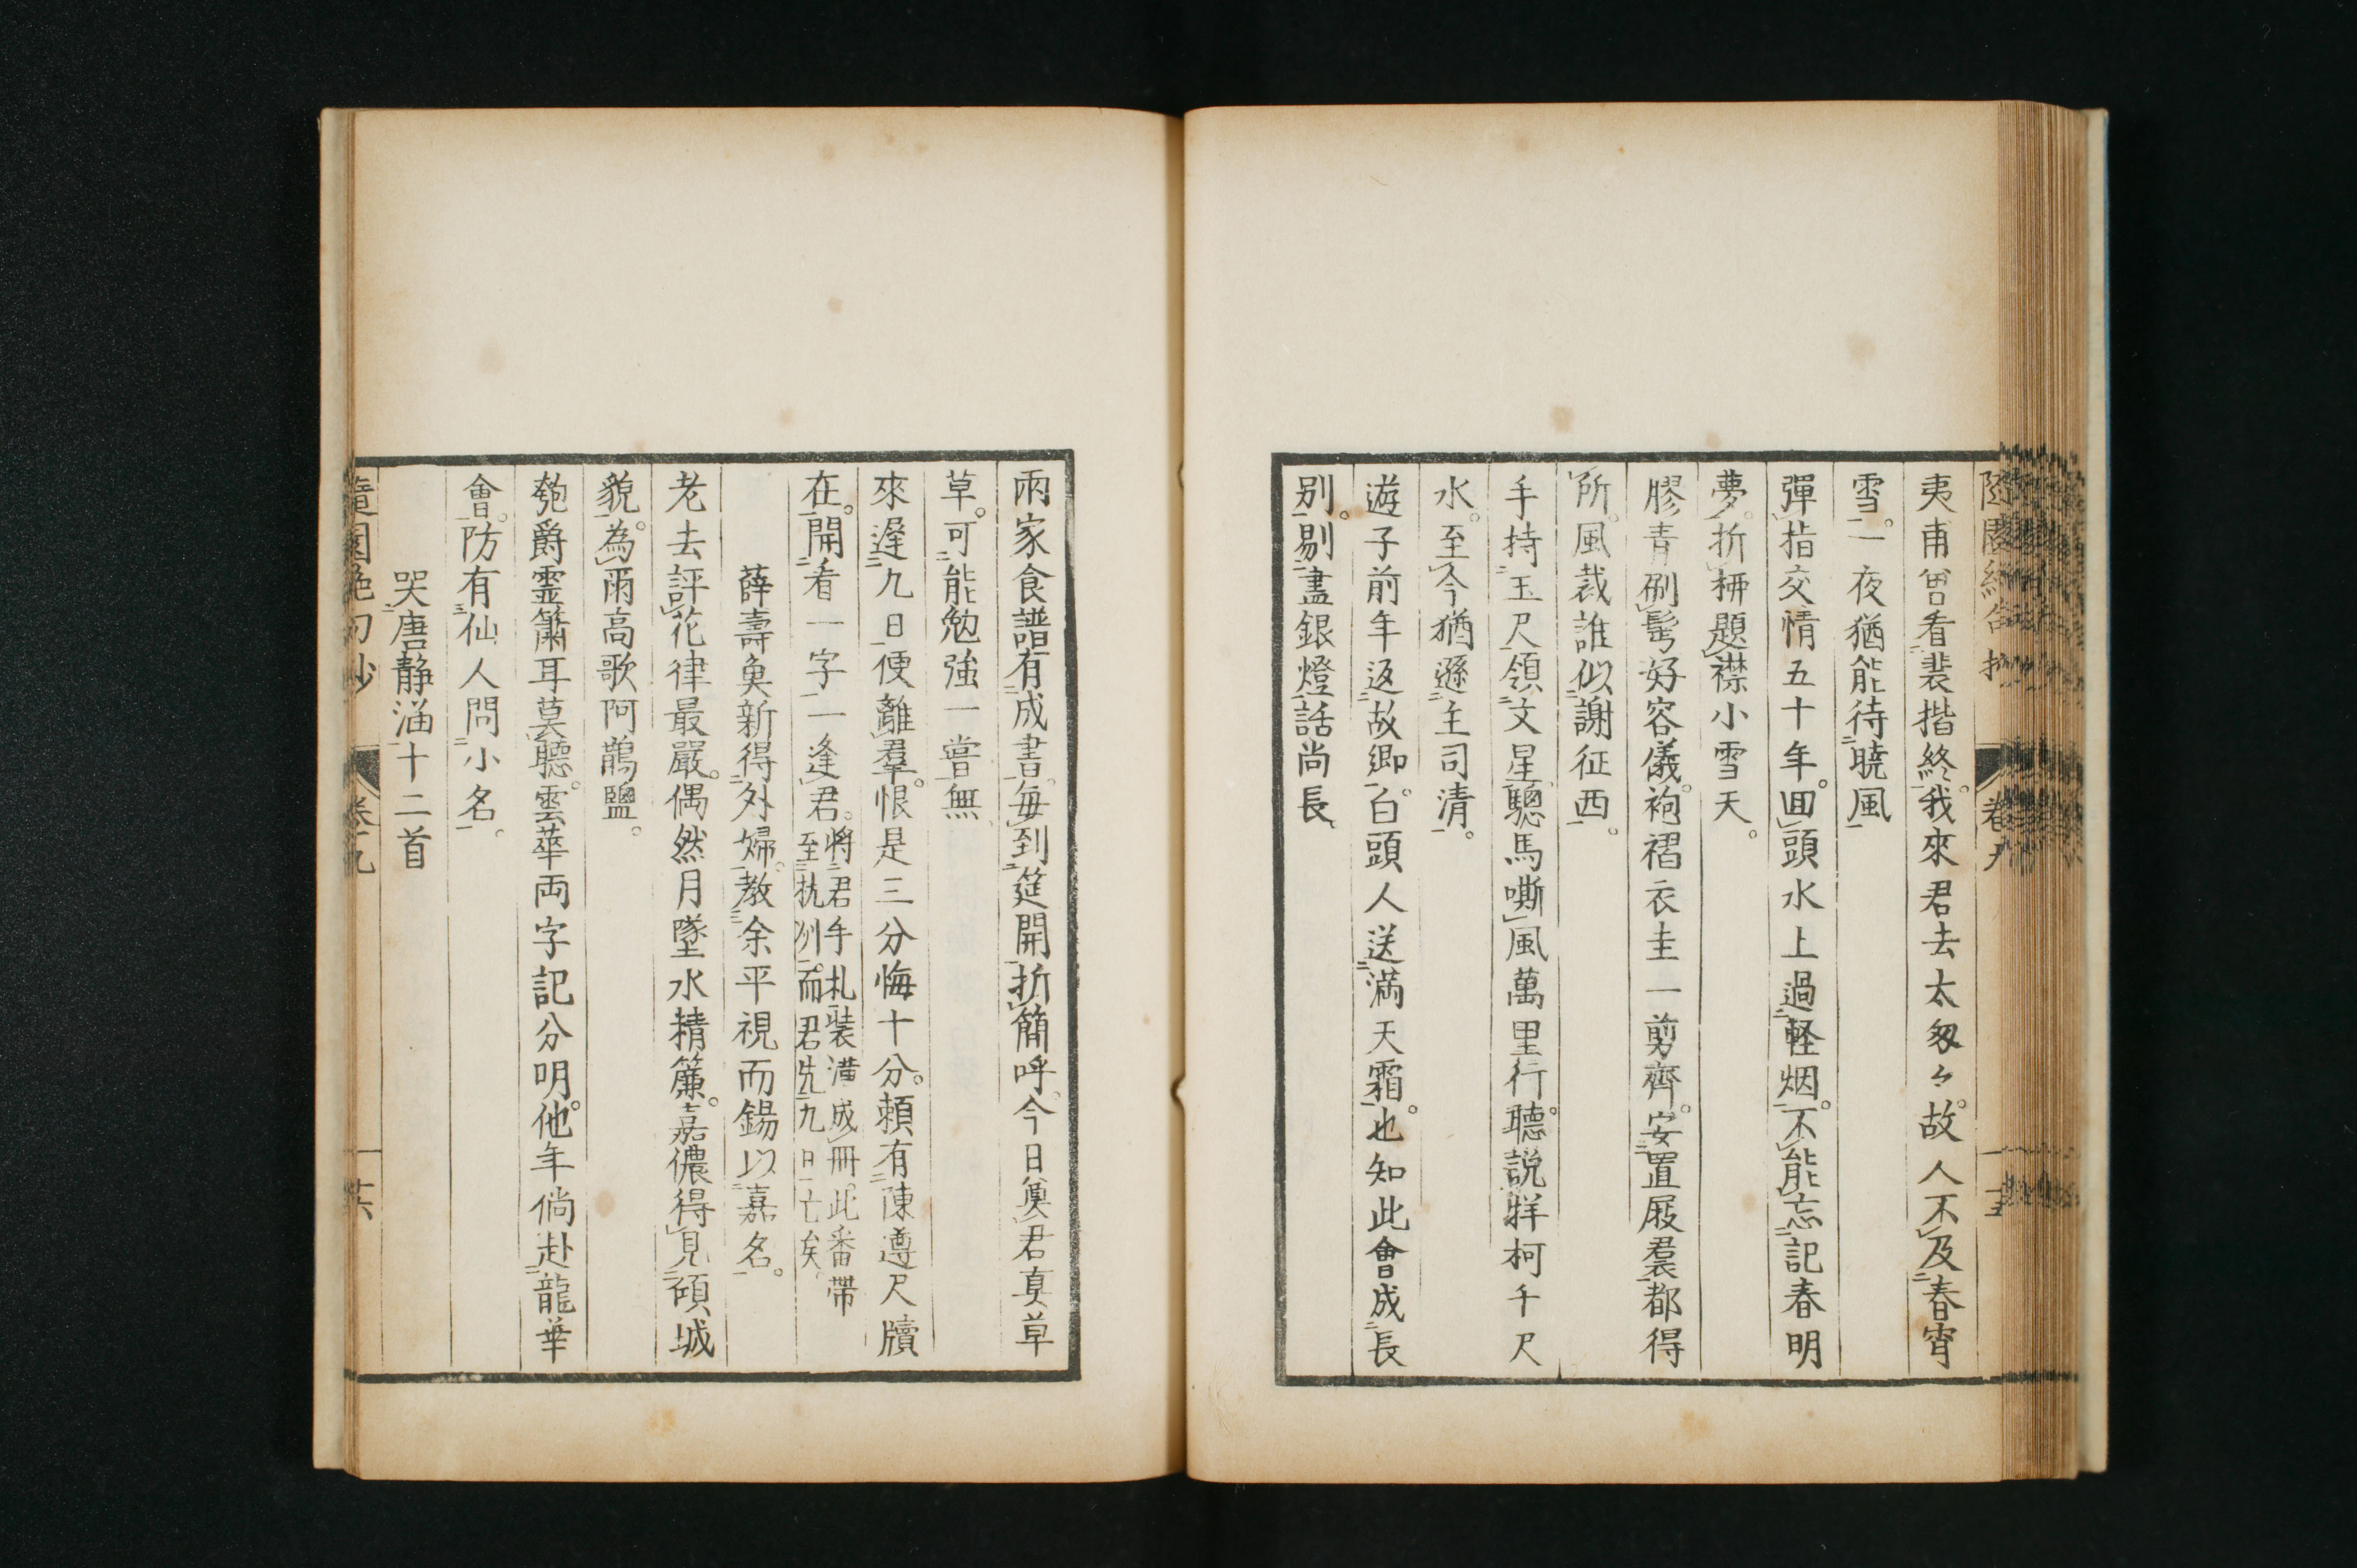 隨園絶句抄 卷九
夷甫曽看裴揩終。我來君去太匆々。故人不及春宵
雪。一夜猶能待曉風
彈指交情五十年。回頭水上過軽烟。不能忘記春明
夢。折柳題襟小雪天。
膠青刷髩好容儀。袍褶衣圭一剪齊。安置屐裠都得
所。風裁誰似謝征西。
手持玉尺領文星。驄馬嘶風萬里行。聽説牂柯千尺
水。至今猶遜主司清。
遊子前年返故郷。白頭人送滿天霜。也知此會成長
别。剔盡銀燈話尚長
兩家食譜有成書。毎到筵開折簡呼。今日奠君真草
草。可能勉強一嘗無
來遲九日便離羣。恨是三分悔十分。頼有陳遵尺牘
在。開看一字一逢君。將君手札装潢成冊。此番帶
至杭州。而君先九日亡矣。
薛壽魚新得外婦。教余平視而錫以嘉名。
老去評花律最嚴。偶然月墜水精簾。嘉儂得見碩城
貌。為雨高歌阿鵲鹽。
匏爵霊簫耳莫聽。雲華両字記分明。他年倘赴龍華
會。防有仙人問小名。
哭唐静涵十二首
隨園絶句抄 卷九 一 廿六